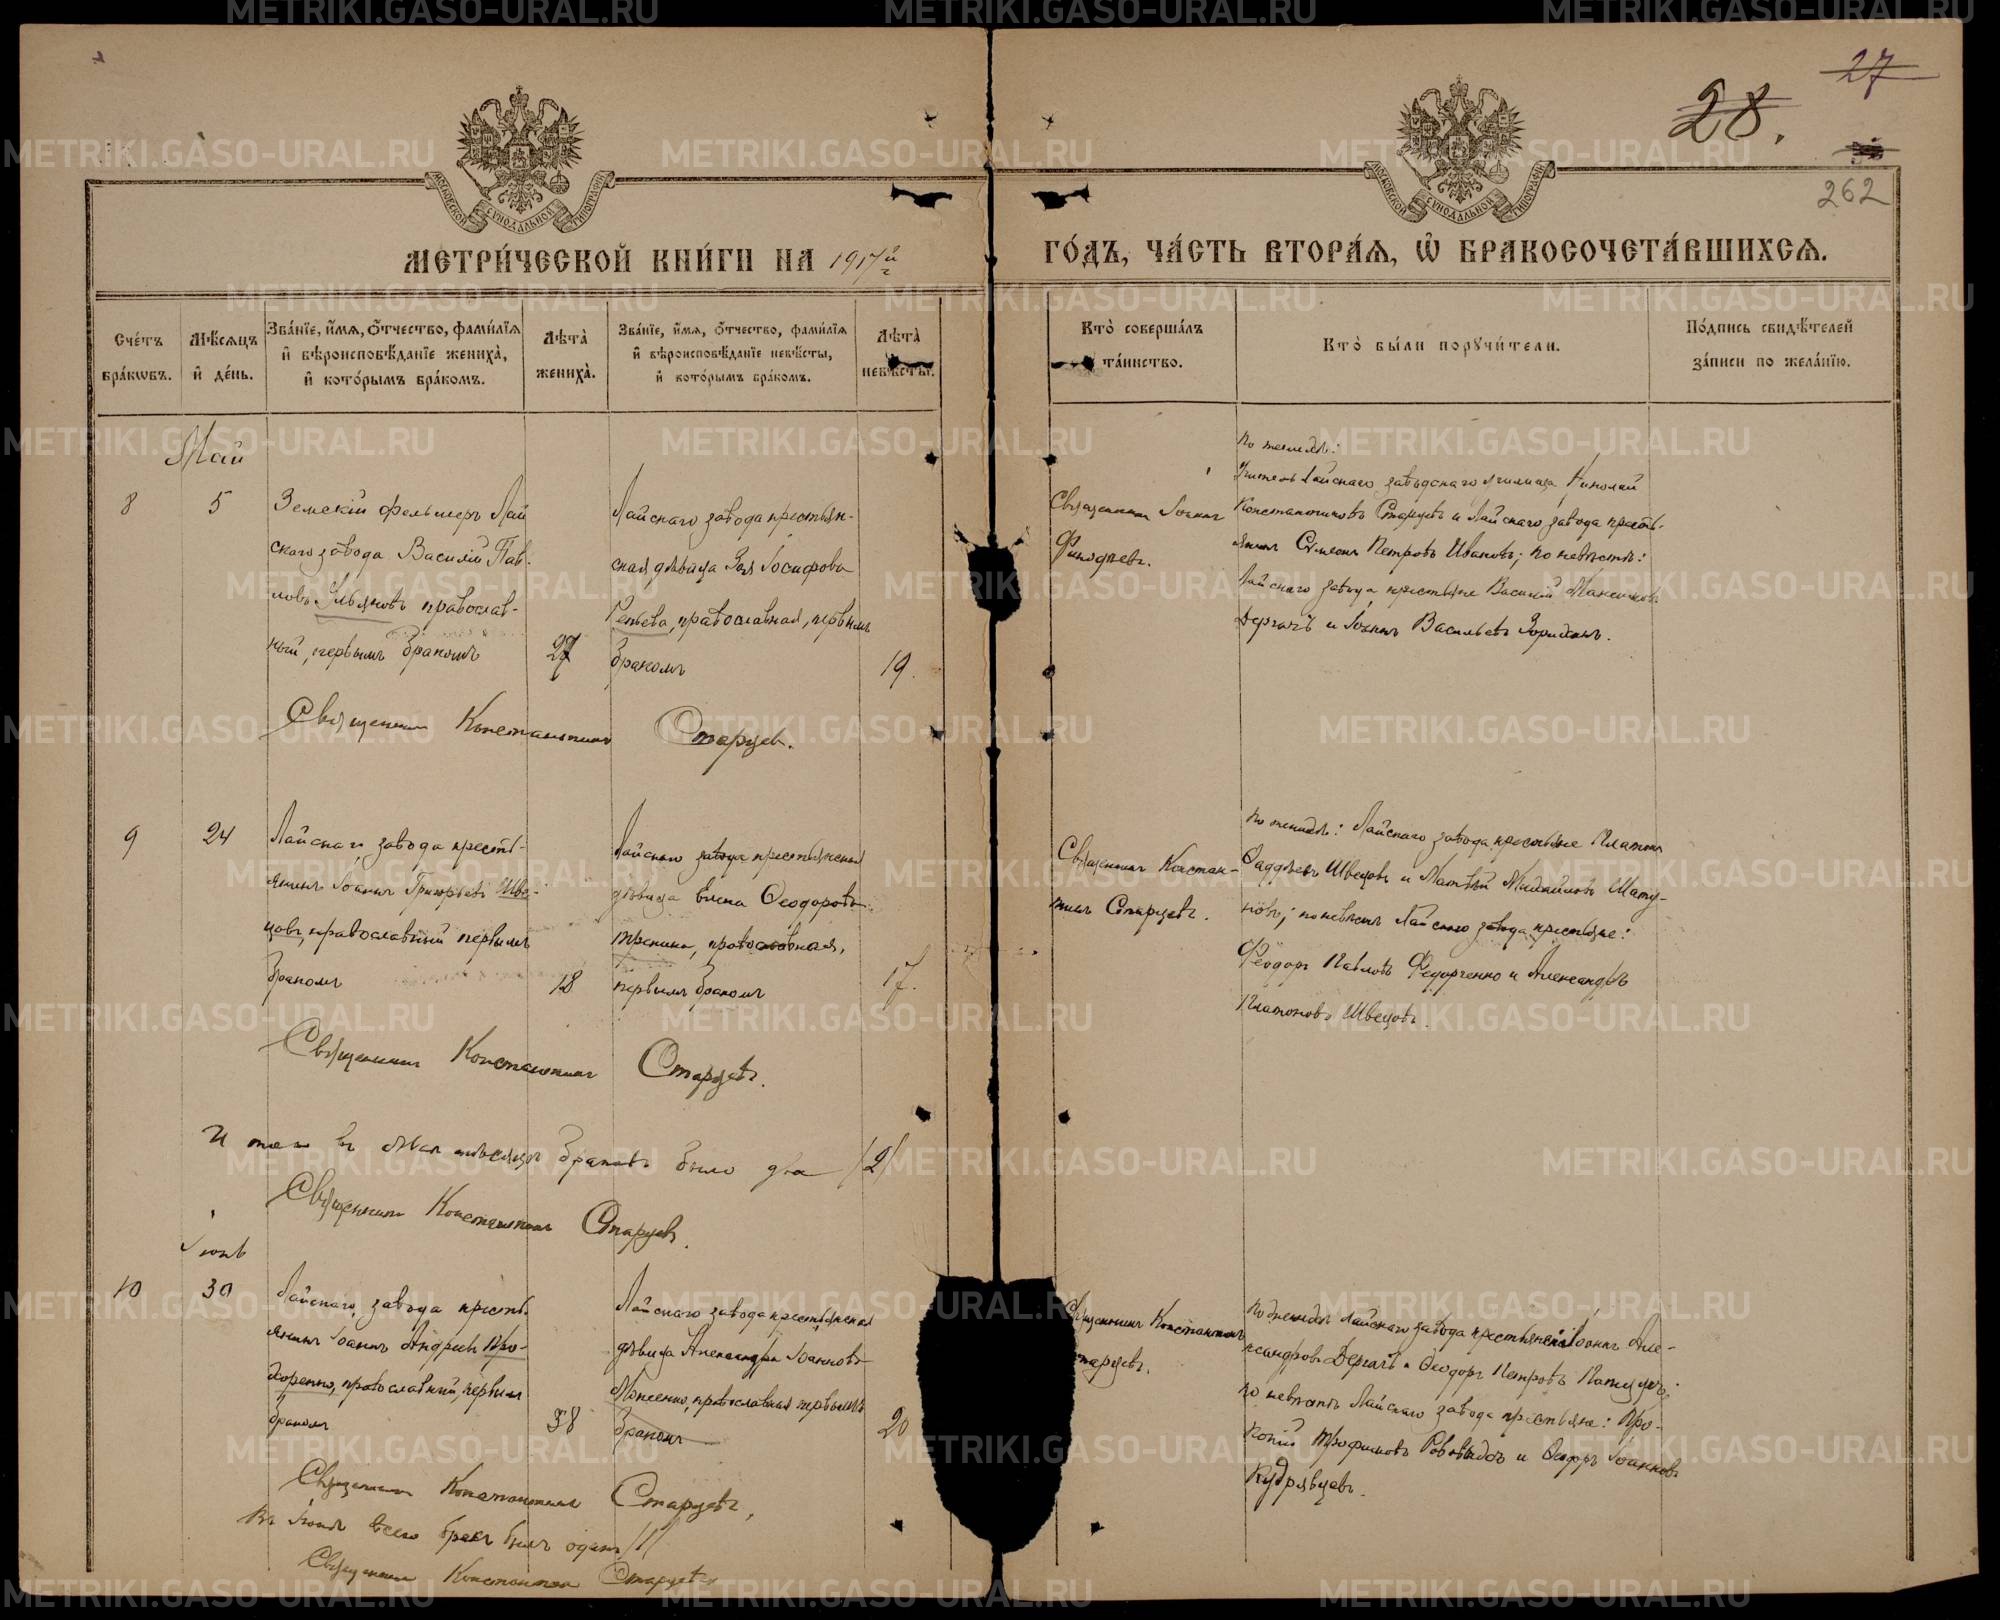 27
28.
262
МОСКОВСКОЙ СѴНОДАЛЬНОЙ ТИПОГРАФІИ
МОСКОВСКОЙ СѴНОДАЛЬНОЙ ТИПОГРАФІИ
МЕТРИ́ЧЕСКОЙ КНИ́ГИ НА 1917й г
ГО́ДЪ, ЧА́СТЬ ВТОРА́Я, Ѡ҆ БРАКОСОЧЕТА́ВШИХСЯ.
Сче́тъ бра́кѡвъ.
Мѣ́сяцъ и҆ де́нь.
Зва́нїе, и҆́мя, ѻ҆́тчество, фами́лїя и҆ вѣроисповѣ́данїе жениха̀, и҆ кото́рымъ бра́комъ.
Лѣта̀ жениха̀.
Зва́нїе, и҆́мя, ѻ҆́тчество, фами́лїя и҆ вѣроисповѣ́данїе невѣ́сты, и҆ кото́рымъ бра́комъ.
Лѣта̀ невѣ́сты.
Кто̀ соверша́лъ та́инство.
Кто̀ бы́ли порꙋчи́тели.
По́дпись свидѣ́телей за́писи по жела́нїю.
Май
8
5
Земскій фельшеръ Лай
скаго завода Василій Пав-
ловъ Ульяновъ православ-
ный, первымъ бракомъ
27
Лайскаго завода крестьян-
ская дѣвица Зоя Іосифова
Репьева, православная, первымъ
бракомъ
19.
Священникъ Іоаннъ
по женихѣ:
Учитель Лайскаго заводскаго училища Николай
Константиновъ Старцевъ и Лайскаго завода кресть-
янинъ Симеонъ Петровъ Ивановъ; по невѣстѣ:
Лайскаго завода крестьяне Василій Максимовъ
Дергачъ и Іоаннъ Васильевъ
Священникъ Константинъ Старцевъ.
9
24
Лайскаго завода кресть-
янинъ Іоаннъ Григорьевъ Шве-
цовъ, православный первымъ
бракомъ
18
Лайскаго завода крестьянская
дѣвица Елена Ѳеодорова
православная,
первымъ бракомъ
17.
Священникъ Констан-
тинъ Старцевъ.
по женихѣ: Лайскаго завода крестьяне Платонъ
Ѳаддѣевъ Швецовъ и Матѳій Михайловъ Шату-
новъ; по невѣстѣ Лайскаго завода крестьяне:
Ѳеодоръ Павловъ Федорченко и Александръ
Платоновъ Швецовъ.
Священникъ Константинъ Старцевъ.
Итого въ Маѣ мѣсяцѣ браковъ было два /2/
Священникъ Константинъ Старцевъ.
Іюнь
10
30
Лайскаго завода кресть-
янинъ Іоаннъ Андреевъ Про-
хоренко, православный, первымъ
бракомъ
38
Лайскаго завода крестьянская
дѣвица Александра Іоаннова
православная первымъ
бракомъ
20
Священникъ Константинъ
Старцевъ.
по женихѣ Лайскаго завода крестьяне Іоаннъ Але-
ксандровъ Дергачъ и Ѳеодоръ Петровъ
по невѣстѣ Лайскаго завода крестьяне: Про-
копій Трофимовъ и Ѳеодоръ Іоанновъ
Кудрявцевъ.
Священникъ Константинъ Старцевъ.
Въ Іюнѣ всего бракъ былъ одинъ /1/
Священникъ Константинъ Старцевъ
METRIKI.GASO-URAL.RU